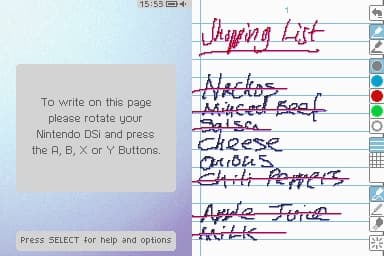 15:59
To write on this page
please rotate your
Nintendo DSi and press
the A, B, X or Y Buttons.
Press SELECT for help and options
1
Shopping List
Nachos
Minced Beef
Salsa
Cheese
Onions
Chili Peppers
Apple Juice
Milk